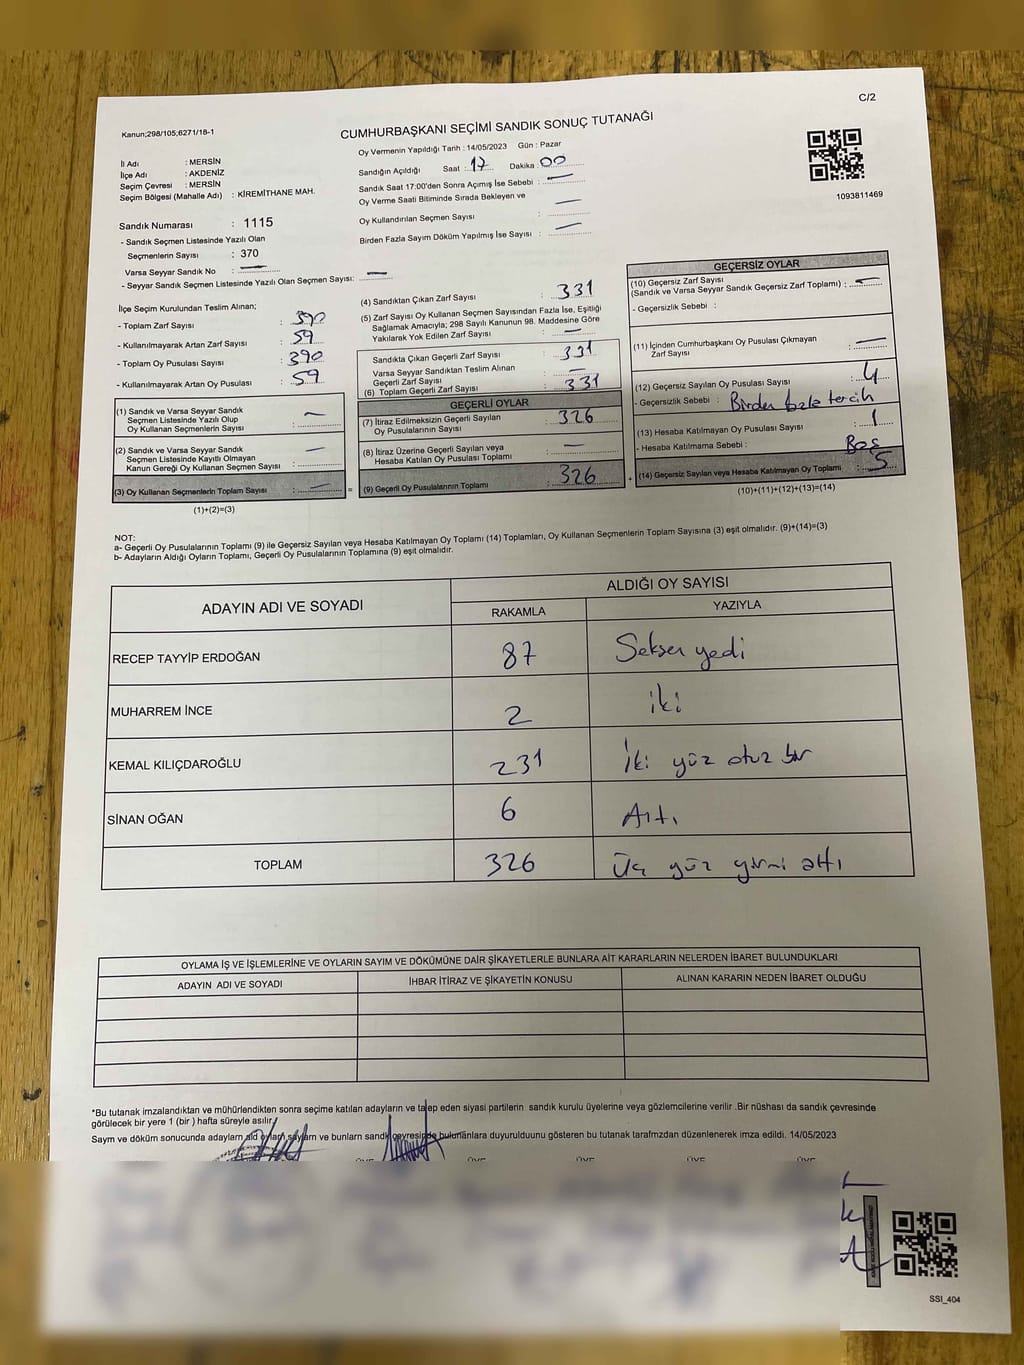 C/2
Kanun;298/105;6271/16-1
CUMHURBAŞKANI SEÇİMİ SANDIK SONUÇ TUTANAĞI
İl Adı : MERSİN
İlçe Adı : AKDENİZ
Seçim Çevresi : MERSİN
Seçim Bölgesi (Mahalle Adı) : KİREMİTHANE MAH.
Sandık Numarası : 1115
- Sandık Seçmen Listesinde Yazılı Olan
Seçmenlerin Sayısı : 370
Varsa Seyyar Sandık No : —
- Seyyar Sandık Seçmen Listesinde Yazılı Olan Seçmen Sayısı: —
Oy Vermenin Yapıldığı Tarih : 14/05/2023 Gün : Pazar
Sandığın Açıldığı Saat : 17 Dakika : 00
Sandık Saat 17:00'den Sonra Açımış İse Sebebi : —
Oy Verme Saati Bitiminde Sırada Bekleyen ve —
Oy Kullandırılan Seçmen Sayısı :
Birden Fazla Sayım Döküm Yapılmış İse Sayısı : —
1093811469
İlçe Seçim Kurulundan Teslim Alınan;
- Toplam Zarf Sayısı : 390
- Kullanılmayarak Artan Zarf Sayısı : 59
- Toplam Oy Pusulası Sayısı : 390
- Kullanılmayarak Artan Oy Pusulası : 59
(1) Sandık ve Varsa Seyyar Sandık
Seçmen Listesinde Yazılı Olup
Oy Kullanan Seçmenlerin Sayısı : —
(2) Sandık ve Varsa Seyyar Sandık
Seçmen Listesinde Kayıtlı Olmayan
Kanun Gereği Oy Kullanan Seçmen Sayısı : —
(3) Oy Kullanan Seçmenlerin Toplam Sayısı : —
(1)+(2)=(3)
(4) Sandıktan Çıkan Zarf Sayısı : 331
(5) Zarf Sayısı Oy Kullanan Seçmen Sayısından Fazla İse, Eşitliği
Sağlamak Amacıyla; 298 Sayılı Kanunun 98. Maddesine Göre
Yakılarak Yok Edilen Zarf Sayısı : —
Sandıkta Çıkan Geçerli Zarf Sayısı : 331
Varsa Seyyar Sandıktan Teslim Alınan
Geçerli Zarf Sayısı : —
(6) Toplam Geçerli Zarf Sayısı : 331
GEÇERLİ OYLAR
(7) İtiraz Edilmeksizin Geçerli Sayılan
Oy Pusulalarının Sayısı : 326
(8) İtiraz Üzerine Geçerli Sayılan veya
Hesaba Katılan Oy Pusulası Toplamı : —
= (9) Geçerli Oy Pusulalarının Toplamı : 326
GEÇERSİZ OYLAR
(10) Geçersiz Zarf Sayısı
(Sandık ve Varsa Seyyar Sandık Geçersiz Zarf Toplamı) : —
- Geçersizlik Sebebi :
(11) İçinden Cumhurbaşkanı Oy Pusulası Çıkmayan
Zarf Sayısı : —
(12) Geçersiz Sayılan Oy Pusulası Sayısı : 4
- Geçersizlik Sebebi : Birden fazla tercih
(13) Hesaba Katılmayan Oy Pusulası Sayısı : 1
- Hesaba Katılmama Sebebi : Boş
+ (14) Geçersiz Sayılan veya Hesaba Katılmayan Oy Toplamı : 5
(10)+(11)+(12)+(13)=(14)
NOT:
a- Geçerli Oy Pusulalarının Toplamı (9) ile Geçersiz Sayılan veya Hesaba Katılmayan Oy Toplamı (14) Toplamları, Oy Kullanan Seçmenlerin Toplam Sayısına (3) eşit olmalıdır. (9)+(14)=(3)
b- Adayların Aldığı Oyların Toplamı, Geçerli Oy Pusulalarının Toplamına (9) eşit olmalıdır.
ADAYIN ADI VE SOYADI
ALDIĞI OY SAYISI
RAKAMLA YAZIYLA
RECEP TAYYİP ERDOĞAN 87 Seksen yedi
MUHARREM İNCE 2 iki
KEMAL KILIÇDAROĞLU 231 İki yüz otuz bir
SİNAN OĞAN 6 Altı
TOPLAM 326 Üç yüz yirmi altı
OYLAMA İŞ VE İŞLEMLERİNE VE OYLARIN SAYIM VE DÖKÜMÜNE DAİR ŞİKAYETLERLE BUNLARA AİT KARARLARIN NELERDEN İBARET BULUNDUKLARI
ADAYIN ADI VE SOYADI İHBAR İTİRAZ VE ŞİKAYETİN KONUSU ALINAN KARARIN NEDEN İBARET OLDUĞU
*Bu tutanak imzalandıktan ve mühürlendikten sonra seçime katılan adayların ve talep eden siyasi partilerin sandık kurulu üyelerine veya gözlemcilerine verilir .Bir nüshası da sandık çevresinde
görülecek bir yere 1 (bir ) hafta süreyle asılır.
Sayım ve döküm sonucunda adayların ald oyların saylarn ve bunlarn sandk çevresinde bulunanlara duyurulduunu gösteren bu tutanak tarafmzdan düzenlenerek imza edildi. 14/05/2023
SSI_404